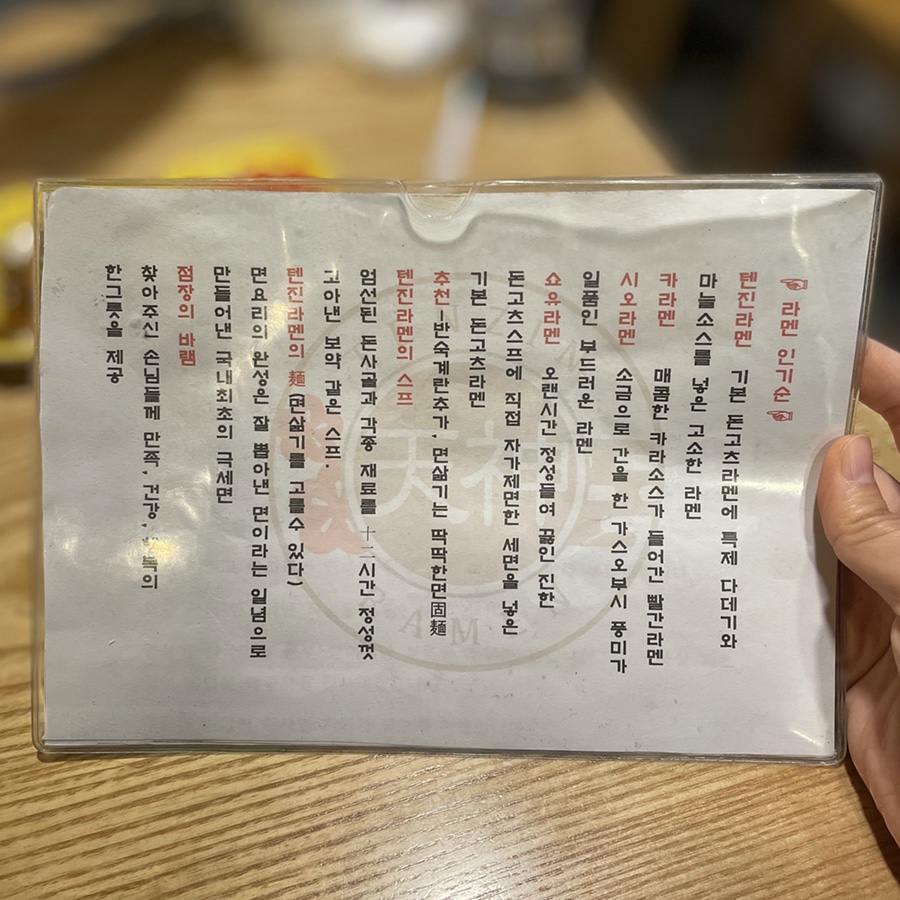 ☜ 라멘 인기순 ☜
텐진라멘 기본 돈고츠라멘에 특제 다데기와
마늘소스를 넣은 고소한 라멘
카라멘 매콤한 카라소스가 들어간 빨간라멘
시오라멘 소금으로 간을 한 가스오부시 풍미가
일품인 부드러운 라멘
쇼유라멘 오랜시간 정성들여 끓인 진한
돈고츠스프에 직접 자가제면한 세면을 넣은
기본 돈고츠라멘
추천-반숙계란추가, 면삶기는 딱딱한면固麺
텐진라멘의 스프
엄선된 돈사골과 각종 재료를 十二시간 정성껏
고아낸 보약 같은 스프.
텐진라멘의 麺(면삶기를 고를수 있다)
면요리의 완성은 잘 뽑아낸 면이라는 일념으로
만들어낸 국내최초의 극세면
점장의 바램
찾아주신 손님들께 만족, 건강, 의
한그릇을 제공
天神
TENZIN
RAMEN